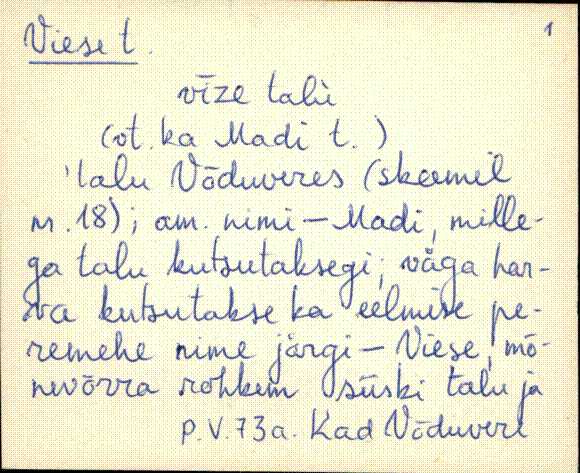 Viese t.
1
vīze talu
(vt. ka Madi t.)
'talu Võduveres (skeemil
nr. 18); am. nimi – Madi, mille-
ga talu kutsutaksegi; väga har-
va kutsutakse ka eelmise pe-
remehe nime järgi – Viese, mõ-
nevõrra rohkem siiski talu ja
P.V. 73a. Kad Võduvere